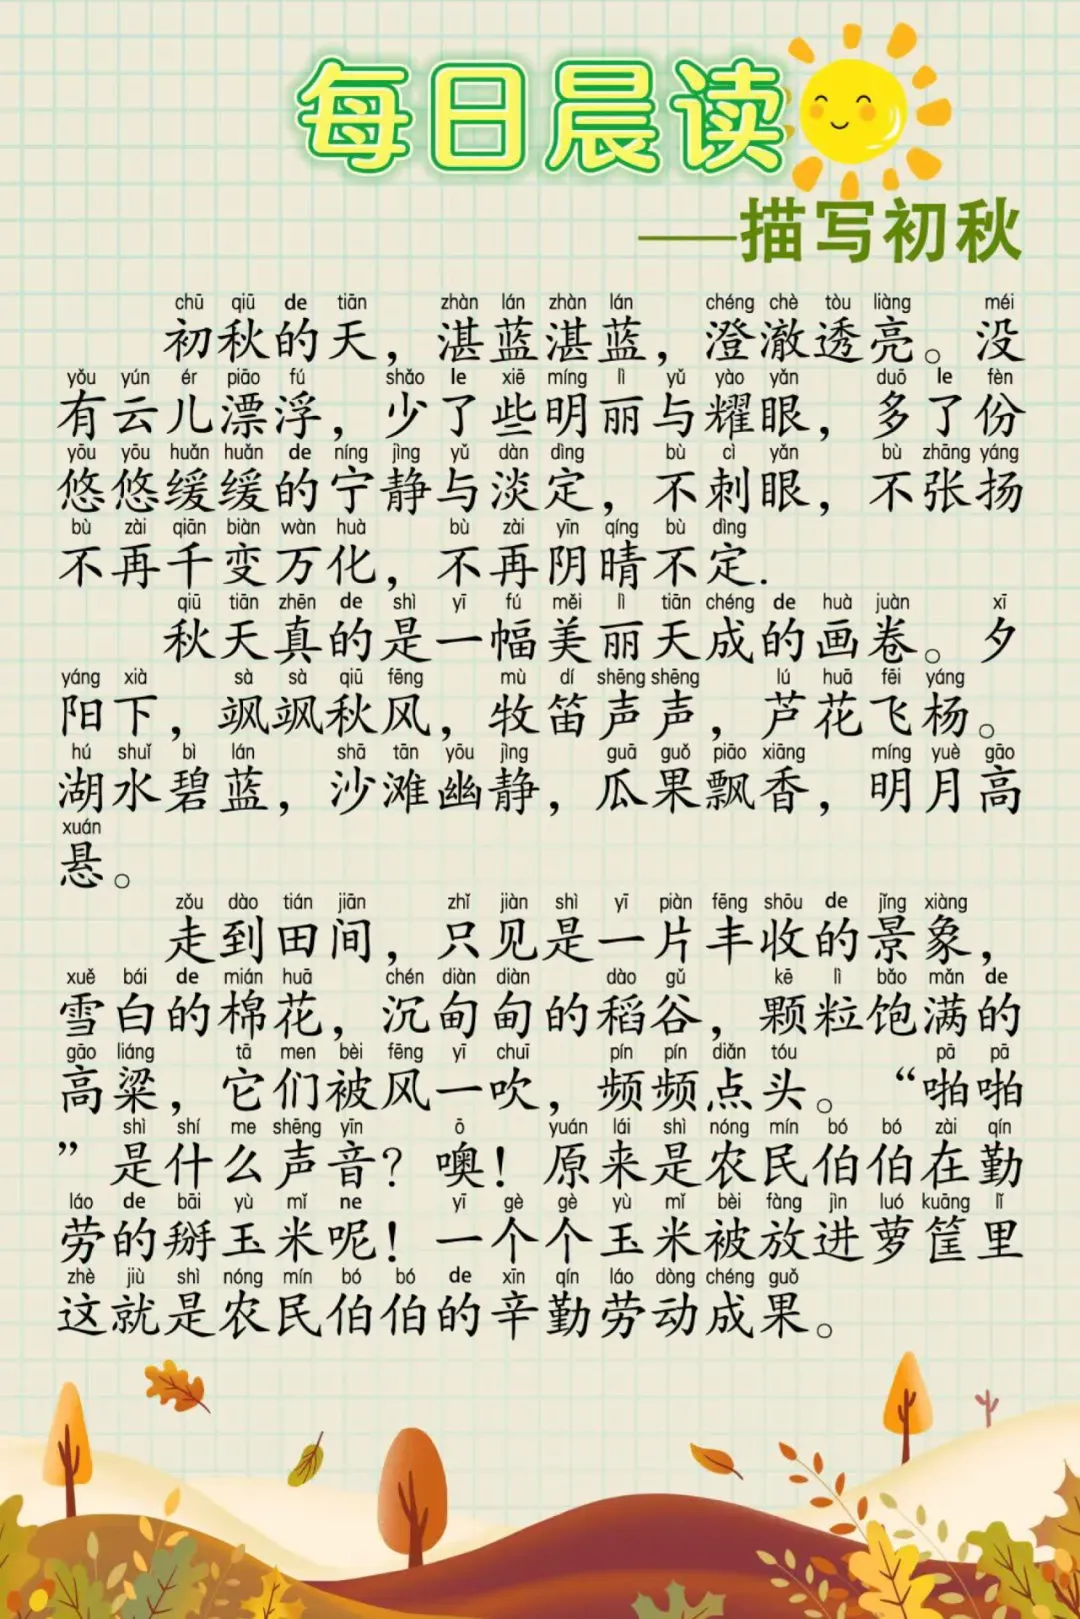 每日晨读
——描写初秋
chū qiū de tiān zhàn lán zhàn lán chéng chè tòu liàng méi
初秋的天，湛蓝湛蓝，澄澈透亮。没
yǒu yún ér piāo fú shǎo le xiē míng lì yǔ yào yǎn duō le fèn
有云儿漂浮，少了些明丽与耀眼，多了份
yōu yōu huǎn huǎn de níng jìng yǔ dàn dìng bù cì yǎn bù zhāng yáng
悠悠缓缓的宁静与淡定，不刺眼，不张扬
bù zài qiān biàn wàn huà bù zài yīn qíng bù dìng
不再千变万化，不再阴晴不定.
qiū tiān zhēn de shì yī fú měi lì tiān chéng de huà juàn xī
秋天真的是一幅美丽天成的画卷。夕
yáng xià sà sà qiū fēng mù dí shēng shēng lú huā fēi yáng
阳下，飒飒秋风，牧笛声声，芦花飞杨。
hú shuǐ bì lán shā tān yōu jìng guā guǒ piāo xiāng míng yuè gāo
湖水碧蓝，沙滩幽静，瓜果飘香，明月高
xuán
悬。
zǒu dào tián jiān zhǐ jiàn shì yī piàn fēng shōu de jǐng xiàng
走到田间，只见是一片丰收的景象，
xuě bái de mián huā chén diàn diàn dào gǔ kē lì bǎo mǎn de
雪白的棉花，沉甸甸的稻谷，颗粒饱满的
gāo liáng tā men bèi fēng yī chuī pín pín diǎn tóu pā pā
高粱，它们被风一吹，频频点头。“啪啪
shì shí me shēng yīn ō yuán lái shì nóng mín bó bó zài qín
”是什么声音？噢！原来是农民伯伯在勤
láo de bāi yù mǐ ne yī gè gè yù mǐ bèi fàng jìn luó kuāng lǐ
劳的掰玉米呢！一个个玉米被放进萝筐里
zhè jiù shì nóng mín bó bó de xīn qín láo dòng chéng guǒ
这就是农民伯伯的辛勤劳动成果。